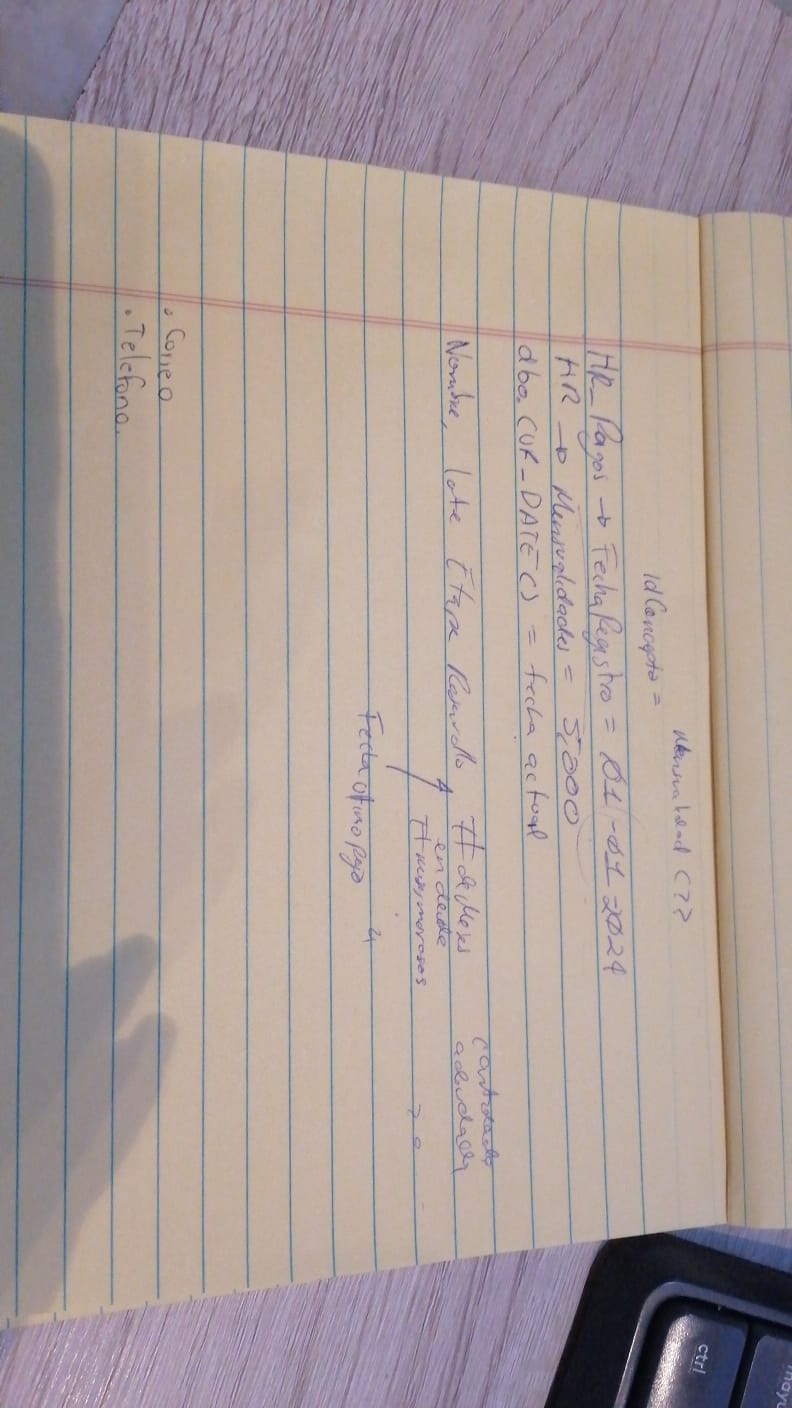 Mensualidad (??
IdConcepto =
HR_Pagos → FechaRegistro = 01-01-2024
HR → Mensualidades = 5,000
dbo. CUR_DATE() = fecha actual
Nombre, lote Etapa # de Meses cantidad
en deuda
# morosos > 0
Fecha pago 4
• Correo
• Telefono.
ctrl
mayú